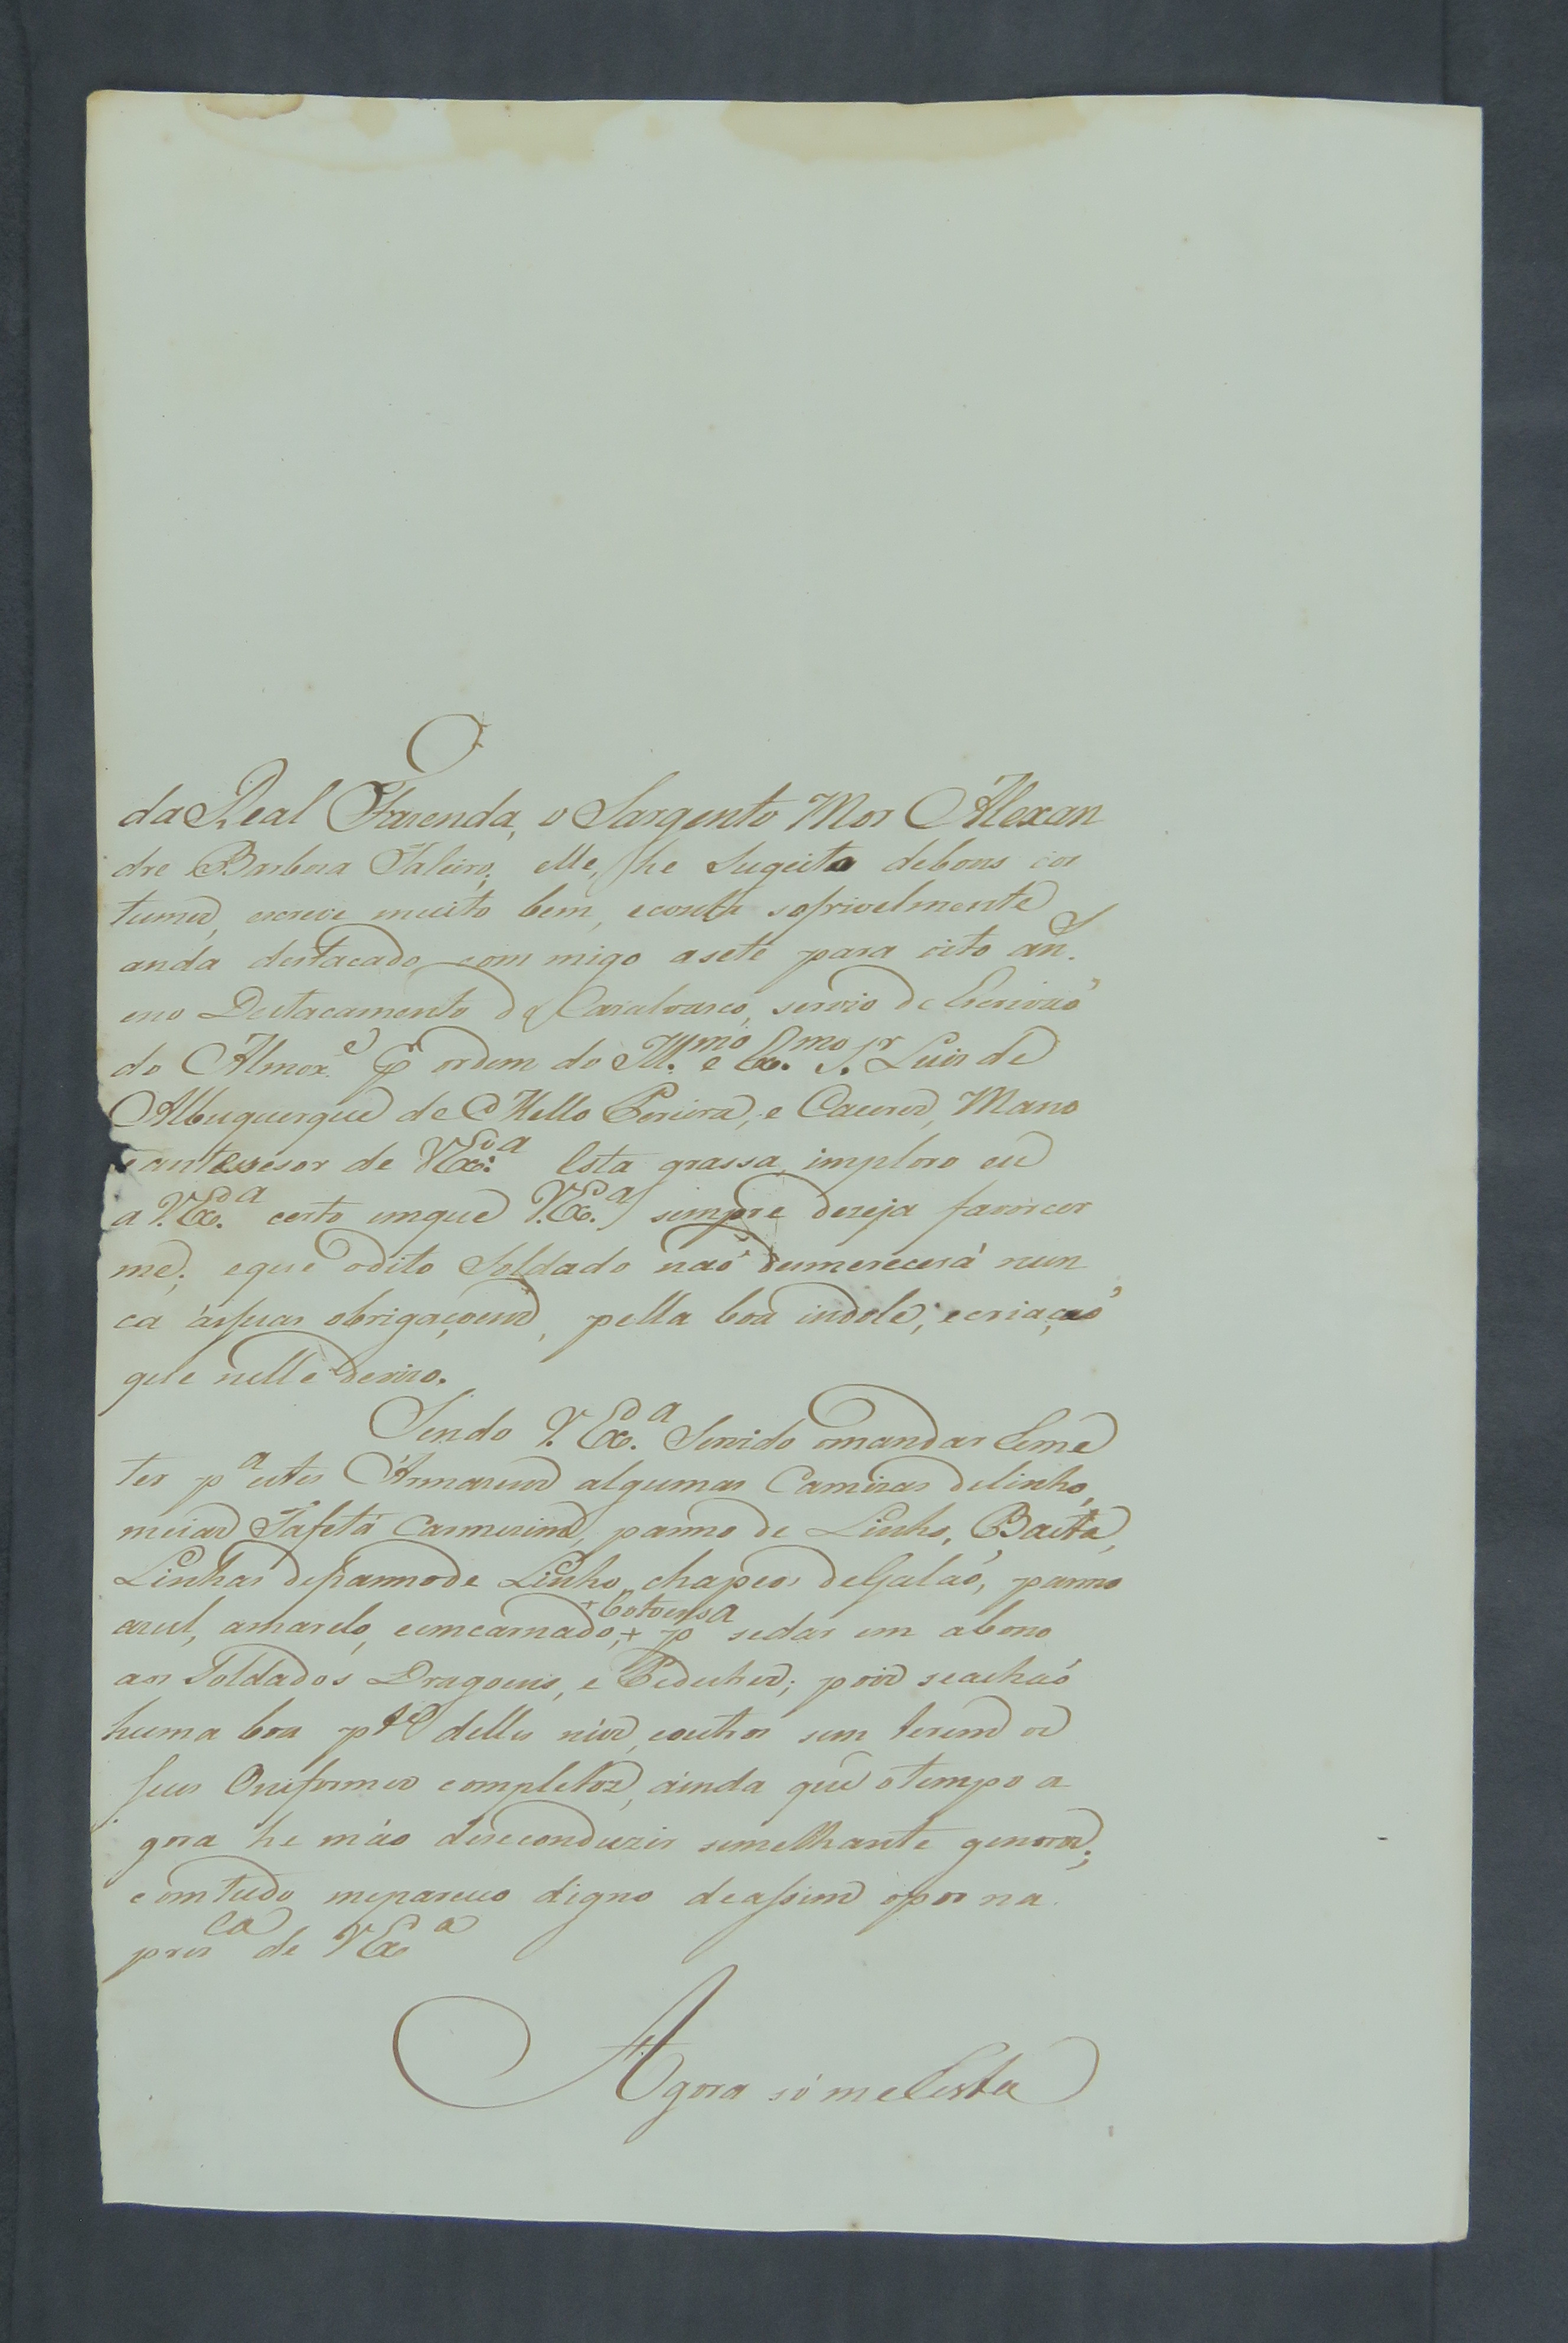 da Real Fazenda, o Sargento Mor Alexan
dre Barboza Faleiro; elle, he Sugeito debons cos
tumes, escreve muito bem, econta sofrivelmente
anda destacado com migo asete para oito an.s
eno Destacamento de Cazalvasco, servio de Escrivaõ
do Almox.e Por ordem do Ill.mo e Ex.mo S.r Luis de
Albuquerque de Mello Pereira, e Caceres, Mano
e antessesor de VEx.a Esta grassa, imploro eu
a V.Ex.a certo emque V.Ex.a sempre dezeja favorecer
me; eque odito Soldado naõ desmerecerá nun
ca ásSuas obrigaçoens, pella boa indole, ecriaçaõ
que nelle devizo.
Sendo V.Ex.a Servido mandar Reme
ter p.a estes Armazens algumas Camizas delinho,
meias Tafetá Carmezim, panno de Linho, Baeta,
Linhas depannode Linho, chapeos deGalaõ, panno
+ botoens
azul, amarelo, eemcarnado,+ p.a sedar em abono
aos Soldados Dragoens, e Pedestres; pois seachaõ
huma boa p.te delles nús, eoutros sem terem os
seus Oniformes completos, ainda que otempo a
gora he máo deseconduzir semelhante generos;
comtudo mepareceo digno deassim opor na
pres.ca de VEx.a
Agora só meResta